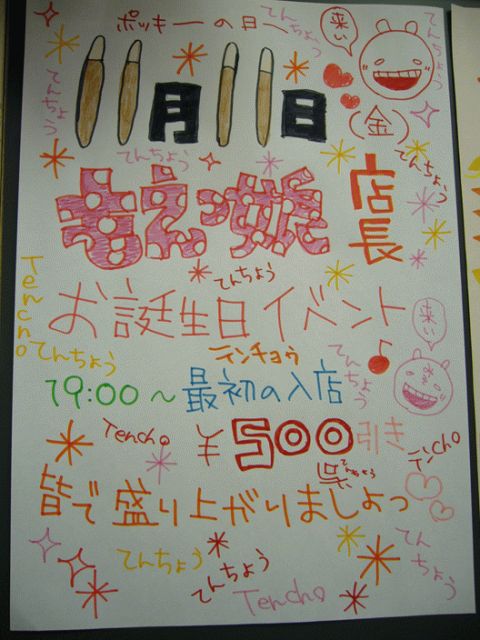 ポッキーの日
てんちょう
来い
てんちょう
てんちょう
11月11日
(金)
てんちょう
てんちょう
店長
てんちょう
お誕生日イベント
Tencho
来い
てんちょう
テンチョウ
てんちょう
19:00~最初の入店
Tencho
¥500引き
テンcho
てんちょう
皆で盛り上がりましょっ
てんちょう
てんちょう
てんちょう
Tencho